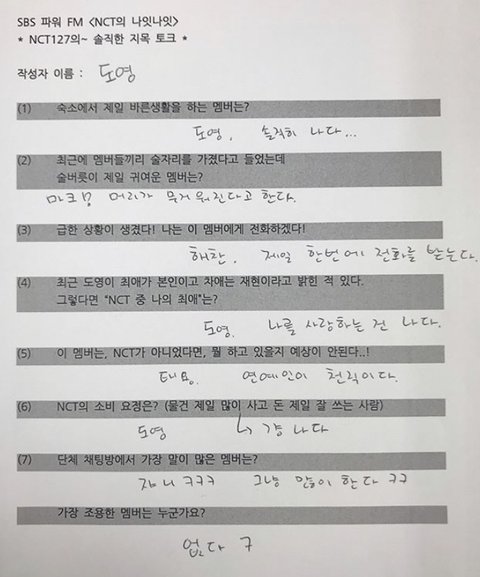 SBS 파워 FM <NCT의 나잇나잇>
* NCT127의~ 솔직한 지목 토크 *
작성자 이름 : 도영
(1) 숙소에서 제일 바른생활을 하는 멤버는?
도영, 솔직히 나다...
(2) 최근에 멤버들끼리 술자리를 가졌다고 들었는데
술버릇이 제일 귀여운 멤버는?
마크! 머리가 무거워진다고 한다.
(3) 급한 상황이 생겼다! 나는 이 멤버에게 전화하겠다!
해찬, 제일 한번에 전화를 받는다.
(4) 최근 도영이 최애가 본인이고 차애는 재현이라고 밝힌 적 있다.
그렇다면 "NCT 중 나의 최애"는?
도영. 나를 사랑하는 건 나다.
(5) 이 멤버는, NCT가 아니었다면, 뭘 하고 있을지 예상이 안된다..!
태용. 연예인이 천직이다.
(6) NCT의 소비 요정은? (물건 제일 많이 사고 돈 제일 잘 쓰는 사람)
도영 ↳ 걍 나다
(7) 단체 채팅방에서 가장 말이 많은 멤버는?
쟈니 ㅋㅋㅋ 그냥 많이 한다 ㅋㅋ
가장 조용한 멤버는 누군가요?
없다 ㅋ